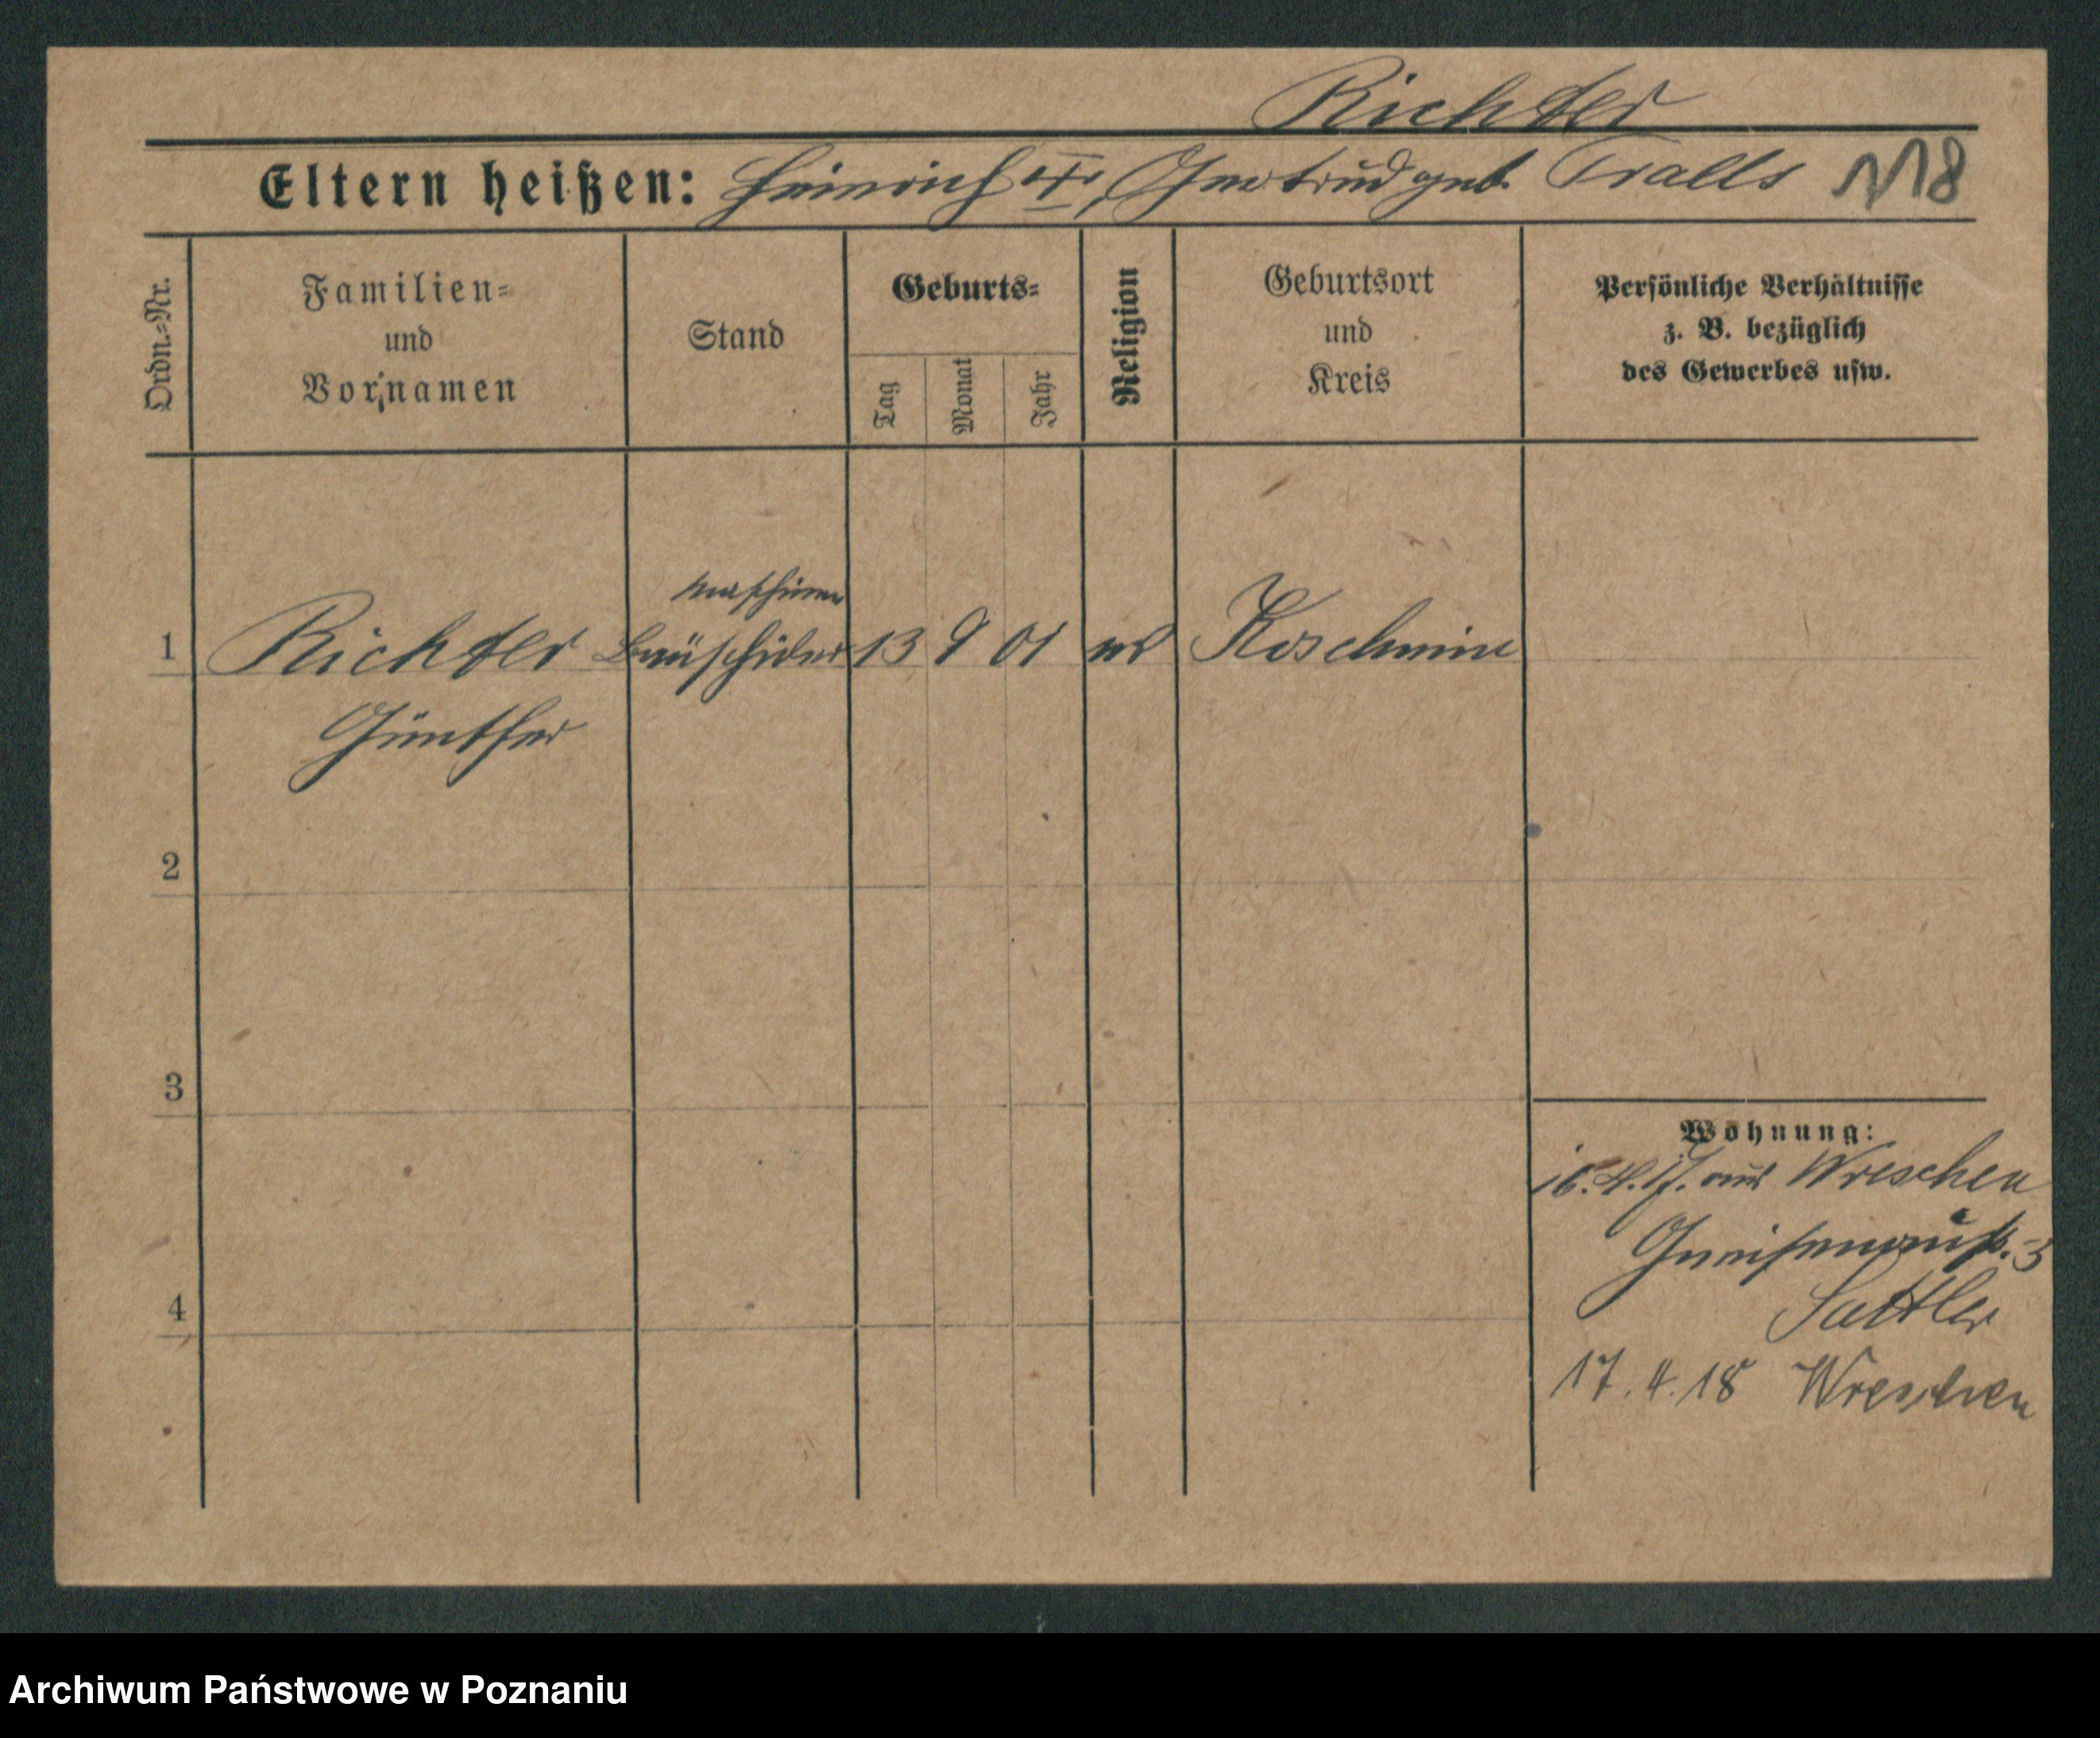 Richter
Eltern heißen: Heinrich ✝, Gertrud geb. Tralls 18
Ordn.-Nr.
Familien- und Vornamen
Stand
Geburts-
Tag
Monat
Jahr
Religion
Geburtsort und Kreis
Persönliche Verhältnisse z. B. bezüglich des Gewerbes usw.
Maschinen
1 Richter Bauschüler 13 9 01 ev Koschmin
Günther
2
3
Wohnung:
16.4.17. aus Wreschen
Gneisenaustr. 3
4
Sattler
17.4.18 Wreschen
Archiwum Państwowe w Poznaniu